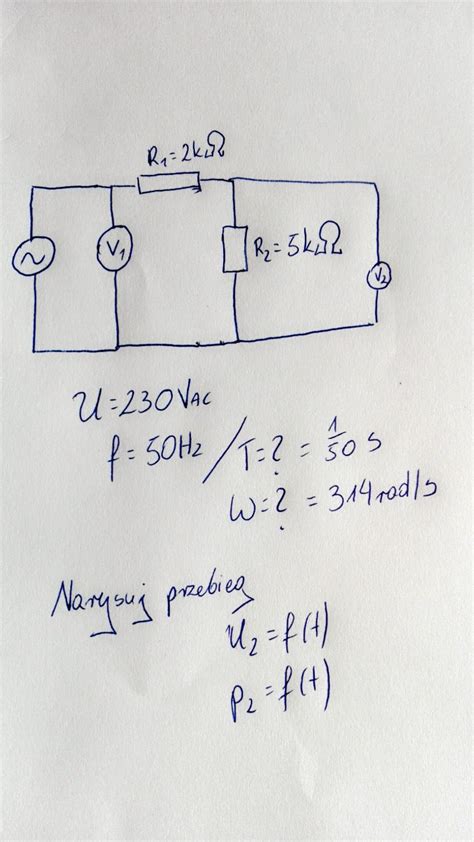 R₁=2kΩ
V₁
R₂=5kΩ
V₂
U=230VAC
f=50Hz / T=? = 1/50 s
W=? = 314 rad/s
Narysuj przebieg
U₂=f(t)
P₂=f(t)